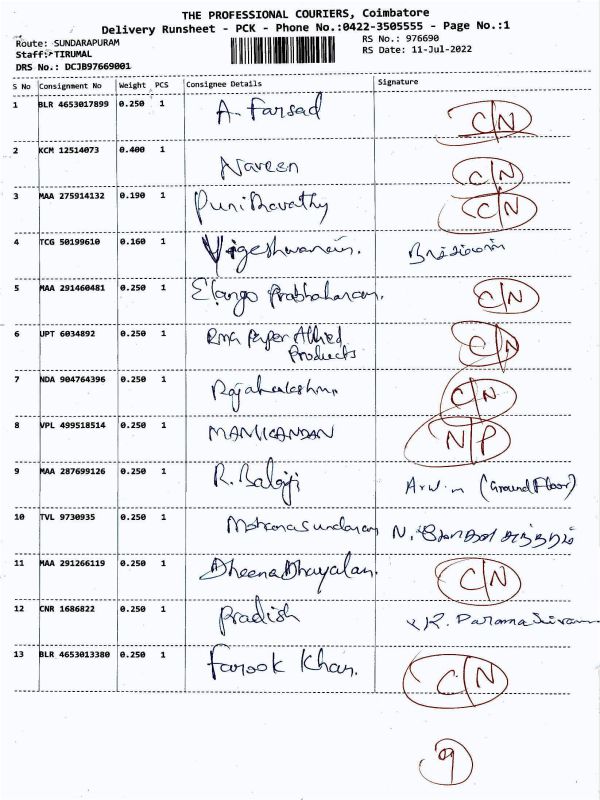 THE PROFESSIONAL COURIERS, Coimbatore
Delivery Runsheet - PCK - Phone No.:0422-3505555 - Page No.:1
Route: SUNDARAPURAM
RS No.: 976690
Staff: TIRUMAL
RS Date: 11-Jul-2022
DRS No.: DCJB97669001
S No Consignment No Weight PCS Consignee Details Signature
1 BLR 4653017899 0.250 1 A. Farsad C/N
2 KCM 12514073 0.400 1 Naveen C/N
3 MAA 275914132 0.190 1 Punitharathy C/N
4 TCG 50199610 0.160 1
5 MAA 291460481 0.250 1 Elango Prabhakaran. C/N
6 UPT 6034892 0.250 1 Rma Paper Allied C/N
Products
7 NDA 904764396 0.250 1 C/N
8 VPL 499518514 0.250 1 MANIKANDAN N/P
9 MAA 287699126 0.250 1 R. Balaji (Ground Floor)
10 TVL 9730935 0.250 1 Mohanasundaram N.
11 MAA 291266119 0.250 1 Dheena Dhayalan. C/N
12 CNR 1686822 0.250 1 Pradish R. Paramasivam
13 BLR 4653013380 0.250 1 Farook Khan. C/N
9